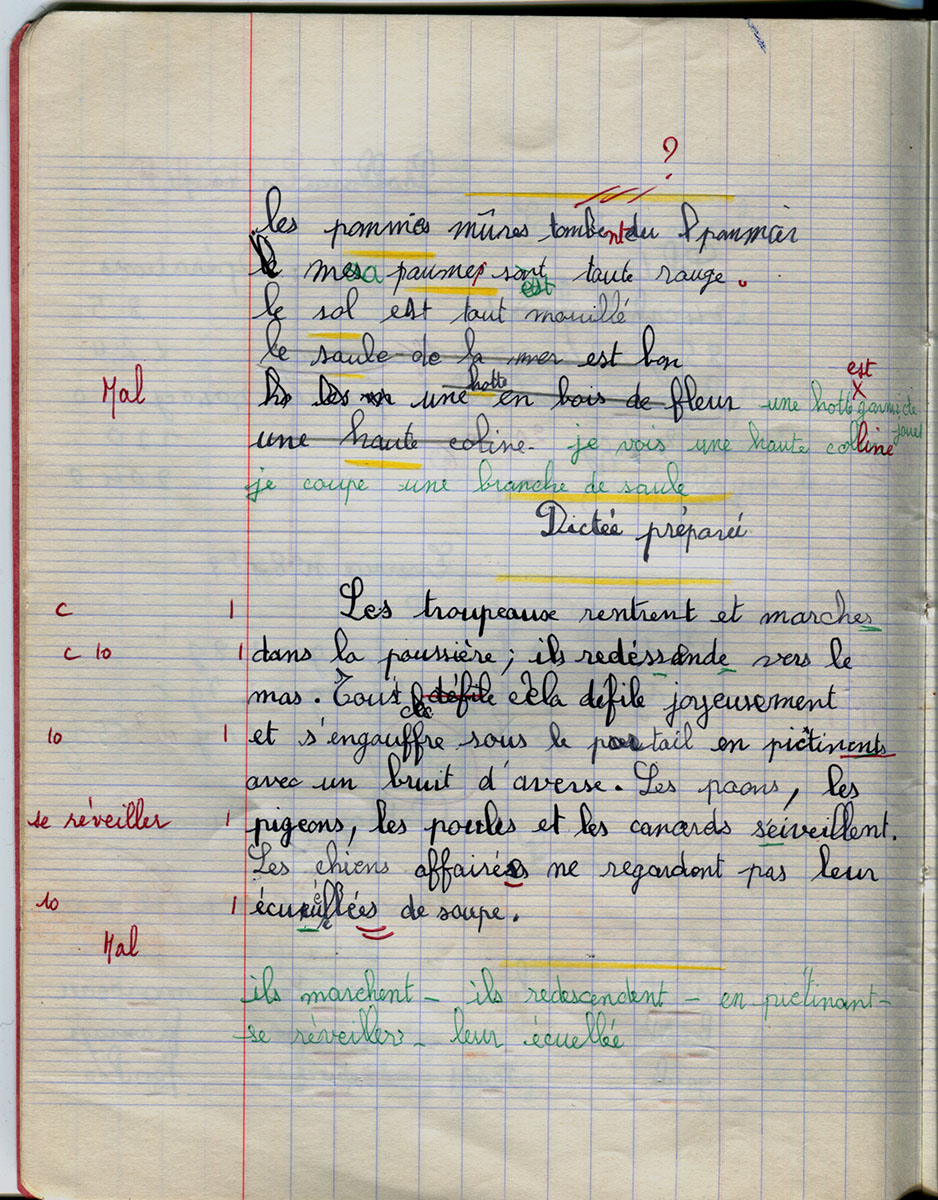 ?
les pommes mûres tombent du pommier
mesa paumes sont est taute rouge.
le sol est tout mouillé
le saule de la mer est bon
est
Mal les une hotte en bois de fleur une hotte x garnie de jouet
une haute coline. je vois une haute colline
je coupe une branche de saule
Dictée préparée
c 1 Les troupeaux rentrent et marches
c 10 1 dans la poussière ; ils redéssende vers le
mas. Tous défile cela défile joyeusement
10 1 et s'engauffre sous le portail en piétinents
avec un bruit d'averse. Les paons, les
se réveiller 1 pigeons, les poules et les canards s'eiveillent.
Les chiens affairés ne regardent pas leur
10 1 écuellées de soupe.
Mal
ils marchent - ils redescendent - en piétinant -
se réveiller - leur écuellée